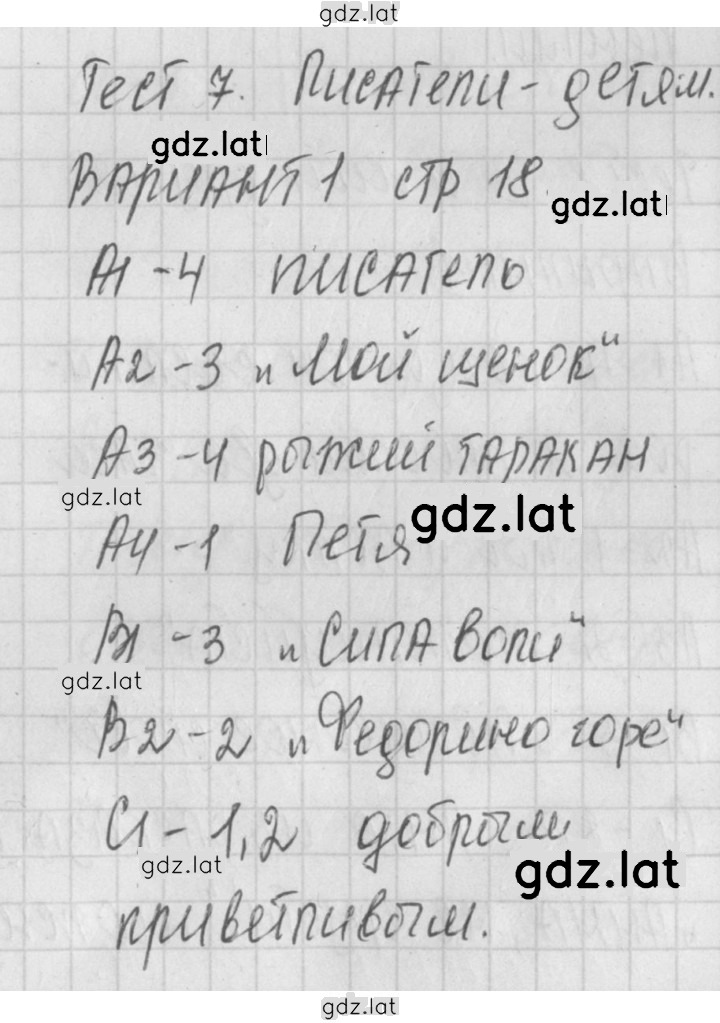 gdz.lat
Тест 7. Писатели - детям.
gdz.lat
Вариант 1 стр 18
gdz.lat
А1 - 4 писатель
А2 - 3 „Мой щенок“
А3 - 4 рыжий таракан
gdz.lat
gdz.lat
А4 - 1 Петя
В1 - 3 „Сила воли“
gdz.lat
В2 - 2 „Федорино горе“
С1 - 1,2 добрым
gdz.lat
gdz.lat
приветливым.
gdz.lat